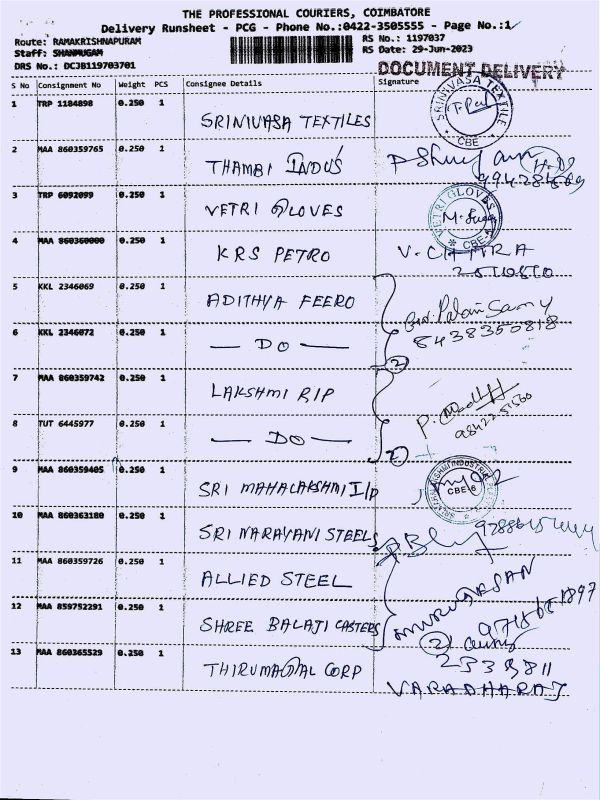 THE PROFESSIONAL COURIERS, COIMBATORE
Delivery Runsheet - PCG - Phone No.:0422-3505555 - Page No.:1
Route: RAMAKRISHNAPURAM
RS No.: 1197037
Staff: SHANMUGAM
RS Date: 29-Jun-2023
DRS No.: DCJB119703701
DOCUMENT DELIVERY
S No Consignment No Weight PCS Consignee Details Signature
1 TRP 1184898 0.250 1 SRINIVASA TEXTILES
SRINIVASA TEXTILE
CBE
2 MAA 860359765 0.250 1 THAMBI INDUS
3 TRP 6092099 0.250 1 VETRI GLOVES
VETRI GLOVES
CBE
4 MAA 860360000 0.250 1 KRS PETRO V. CHITRA
5 KKL 2346069 0.250 1 ADITHYA FEERO
8438350818
6 KKL 2346072 0.250 1 — DO — 2
7 MAA 860359742 0.250 1 LAKSHMI RIP
8 TUT 6445977 0.250 1 — DO — 2
9 MAA 860359405 0.250 1 SRI MAHALAKSHMI I/P
CBE 6
10 MAA 860363180 0.250 1 SRI NARAYANI STEELS
11 MAA 860359726 0.250 1 ALLIED STEEL
12 MAA 859752291 0.250 1 SHREE BALAJI CASTERS
MURUGESAN
2
13 MAA 860365529 0.250 1 THIRUMAGAL CORP
VARADHARAJ